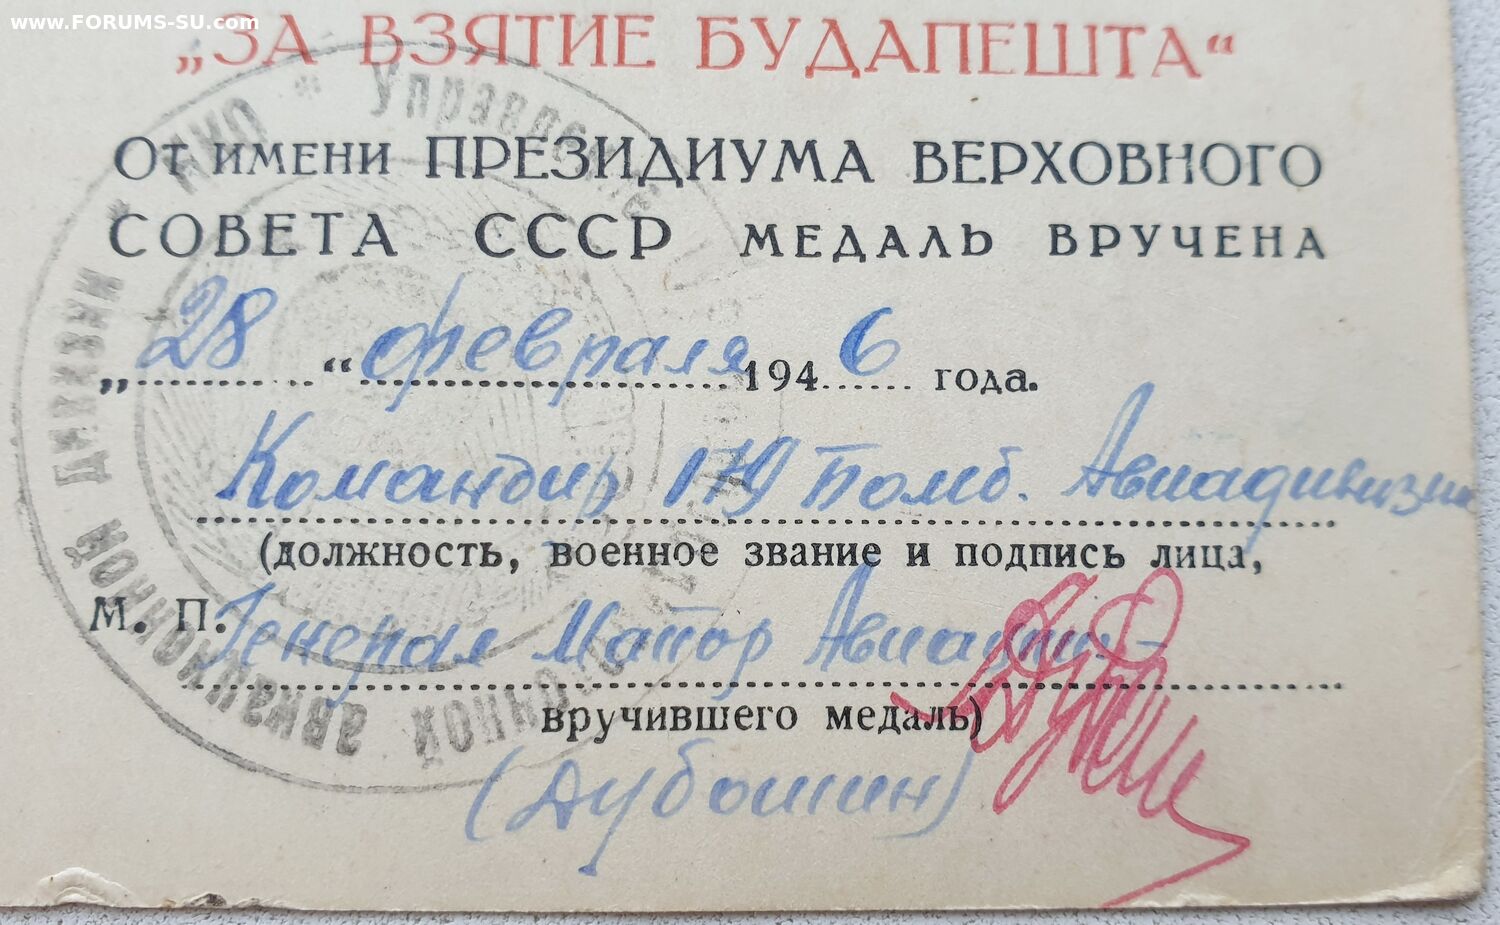 www.FORUMS-SU.com
„ЗА ВЗЯТИЕ БУДАПЕШТА“
От имени ПРЕЗИДИУМА ВЕРХОВНОГО
СОВЕТА СССР МЕДАЛЬ ВРУЧЕНА
„28“ февраля 1946 года.
Командир 179 Бомб. Авиадивизии
(должность, военное звание и подпись лица,
М. П. Генерал Майор Авиации-
вручившего медаль)
(Дубошин)
Управление
авиационной дивизии